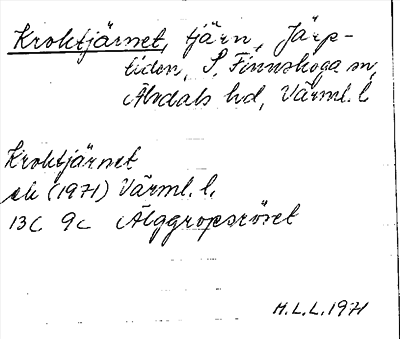 Kroktjärnet, tjärn, Järp-
liden, S. Finnskoga sn,
Älvdals hd, Värml. l
Kroktjärnet
ek (1971) Värml. l.
13C 9c Älggropsröset
H.L.L. 1971